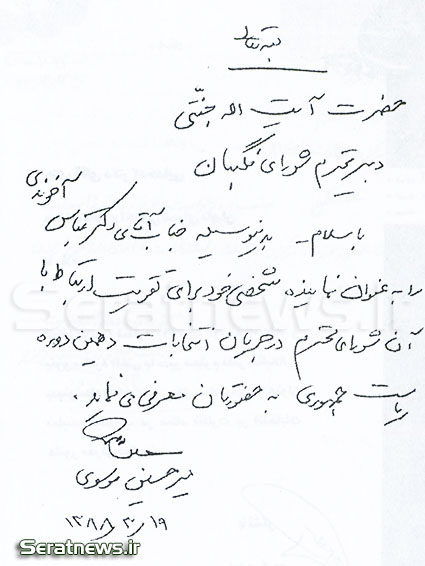 بسمه تعالی
حضرت آیت اله جنّتی
دبیر محترم شورای نگهبان
با سلام - بدینوسیله جناب آقای دکتر عباس آخوندی
را به عنوان نماینده شخصی خود برای تقویت ارتباط با
آن شورای محترم در جریان انتخابات دهمین دوره
ریاست جمهوری به حضورتان معرفی می نماید.
میرحسین موسوی
۱۳۸۸/۳/۱۹
Seratnews.ir
Seratnews.ir